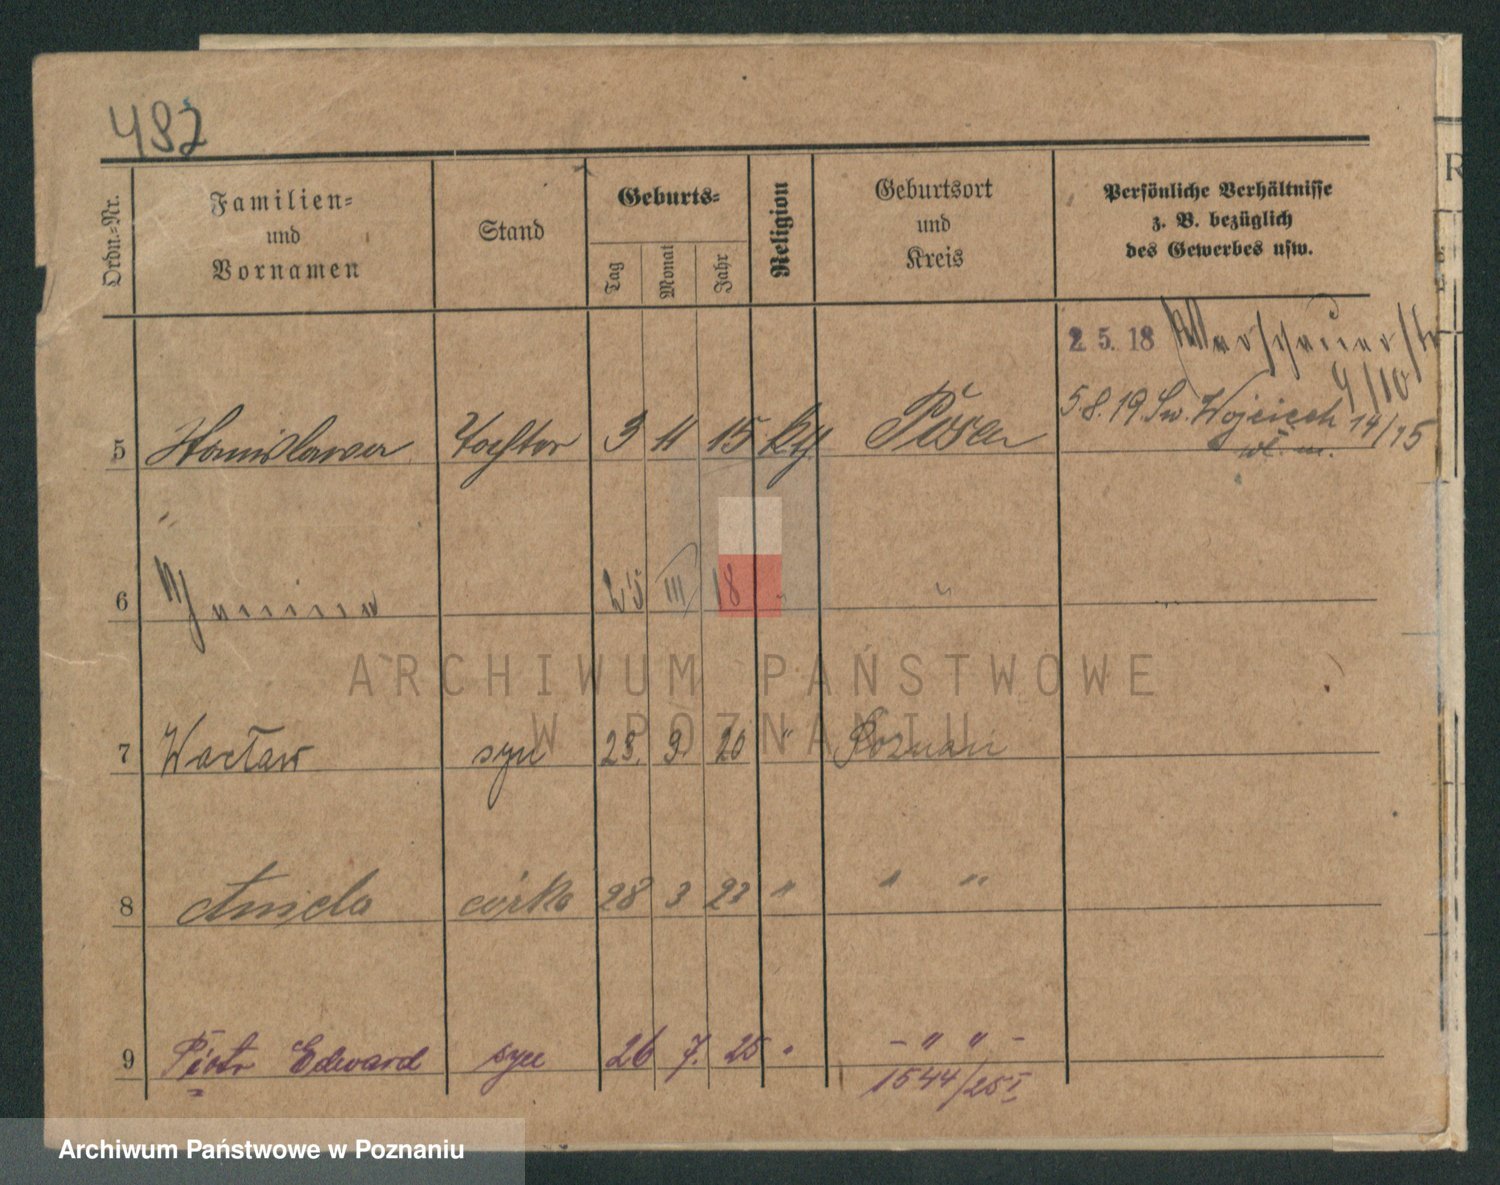 482
Ordn.-Nr.
Familien-
und
Vornamen
Stand
Geburts-
Tag
Monat
Jahr
Religion
Geburtsort
und
Kreis
Persönliche Verhältnisse
z. B. bezüglich
des Gewerbes usw.
2 5. 18
9/10
5.8.19 Św. Wojciech 14/15
wł. m.
5 Stanislawa Tochter 3 11 15 kth Posen
6 Janina 25 III 18 " " "
7 Wacław syn 23. 9. 20 " Poznań
8 Aniela córka 28 3 22 " " "
9 Piotr Edward syn 26 7. 25 " - " " -
1544/25 I
ARCHIWUM PAŃSTWOWE
W POZNANIU
Archiwum Państwowe w Poznaniu